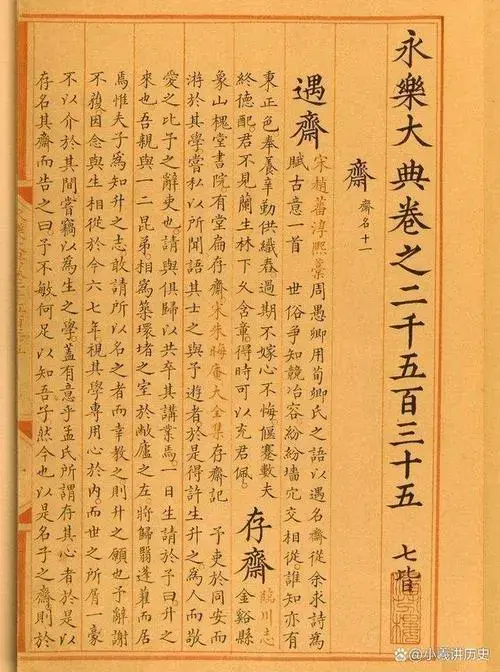 永樂大典卷之二千五百三十五 七皆
齋 齋名十一
遇齋 宋趙蕃淳熙藁 周愚卿用荀卿氏之語以遇名齋從余求詩為
賦古意一首 世俗爭知競冶容紛紛墻宂交相從誰知亦有
秉正色奉養辛勤供織舂過期不嫁心不悔偃蹇數夫
終德配君不見蘭生林下久含章得時可以充君佩
存齋 臨川志 金谿縣
象山槐堂書院有堂扁存齋宋朱晦庵大全集存齋記 予吏於同安而
游於其學嘗私以所聞語其士之與予遊者於是得許生升之為人而敬
愛之比予之辭吏也請與俱歸以共卒其講業焉一日生請於予曰升之
來也吾親與一二昆弟相為築環堵之室於敝廬之左將歸翳蓬藋而居
焉惟夫子為知升之志敢請所以名之者而幸教之則升之願也予辭謝
不獲因念與生相從於今六七年視其學專用心於內而世之所屑一豪
不以介於其間嘗竊以為生之學蓋有意乎孟氏所謂存其心者於是以
存名其齋而告之曰予不敏何足以知吾子然今也以是名子之齋則於
@小羲讲历史